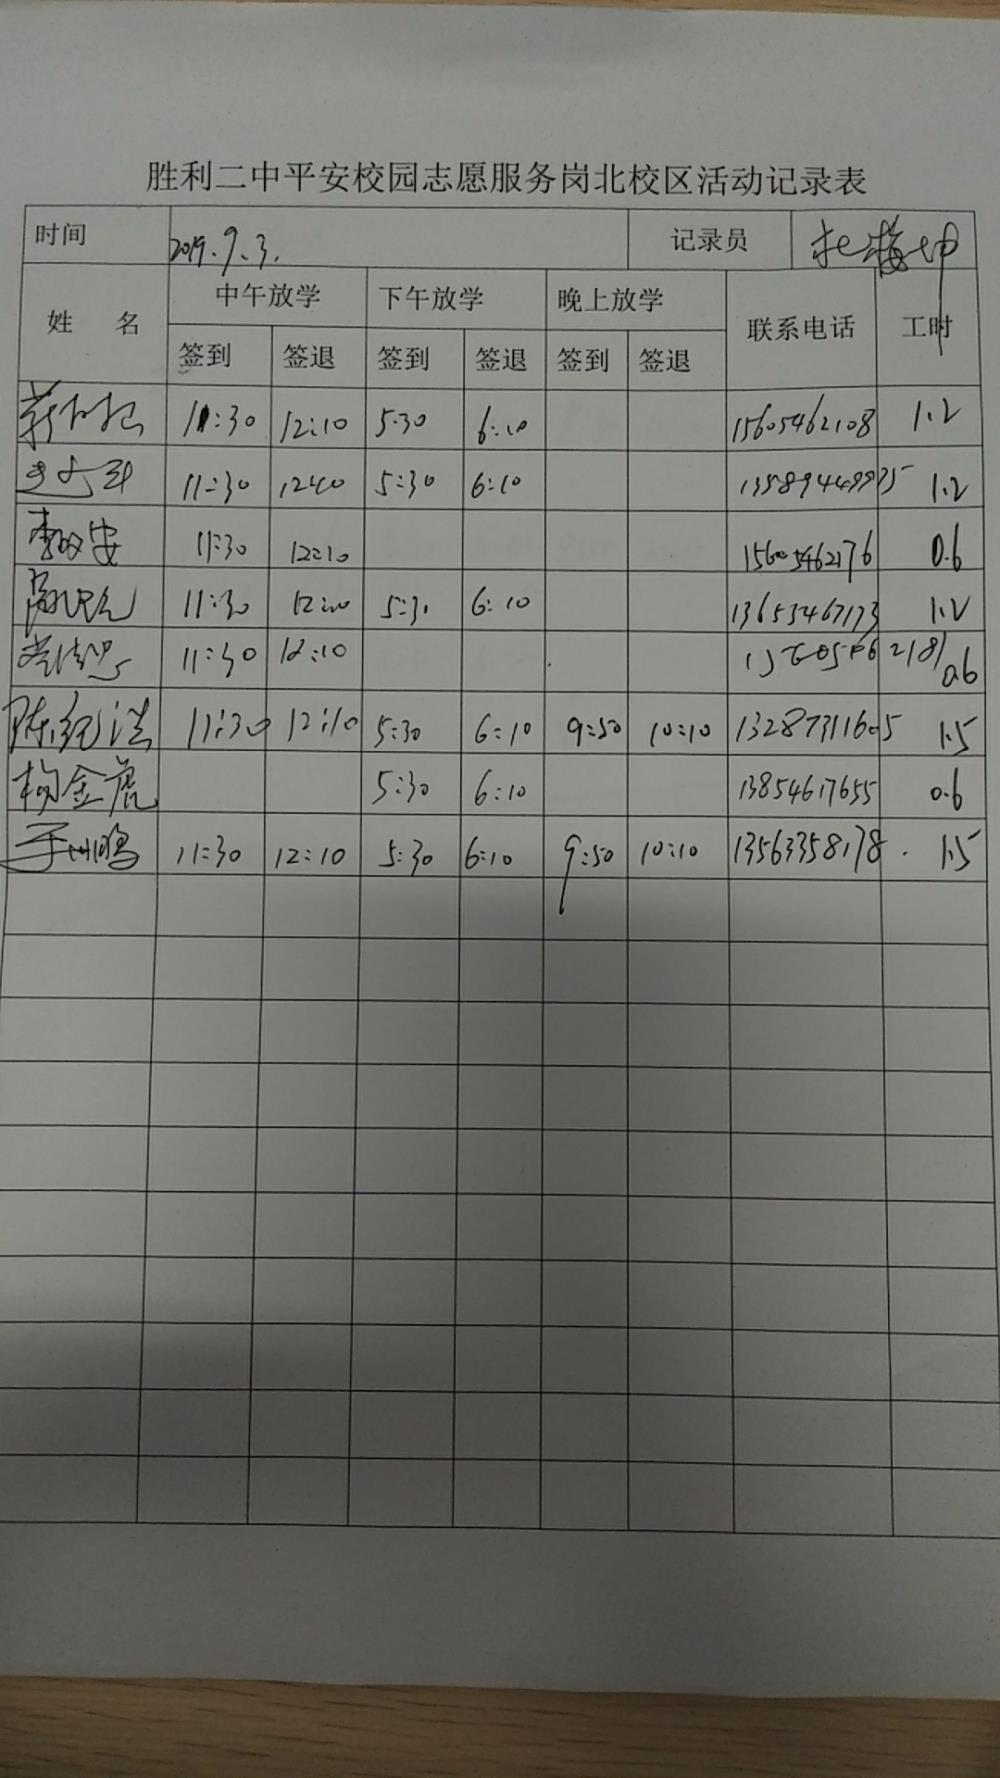 胜利二中平安校园志愿服务岗北校区活动记录表
时间 2019.9.3. 记录员
姓 名 中午放学 下午放学 晚上放学 联系电话 工时
签到 签退 签到 签退 签到 签退
11:30 12:10 5:30 6:10 15605462108 1.2
11:30 5:30 6:10 1.2
11:30 12:10 15605462176 0.6
11:30 5:30 6:10 13653467173 1.2
11:30 12:10 0.6
陈纪浩 11:30 12:10 5:30 6:10 9:50 10:10 13287311605 1.5
杨金虎 5:30 6:10 13854617655 0.6
于 鹏 11:30 12:10 5:30 6:10 9:50 10:10 13563358178 1.5